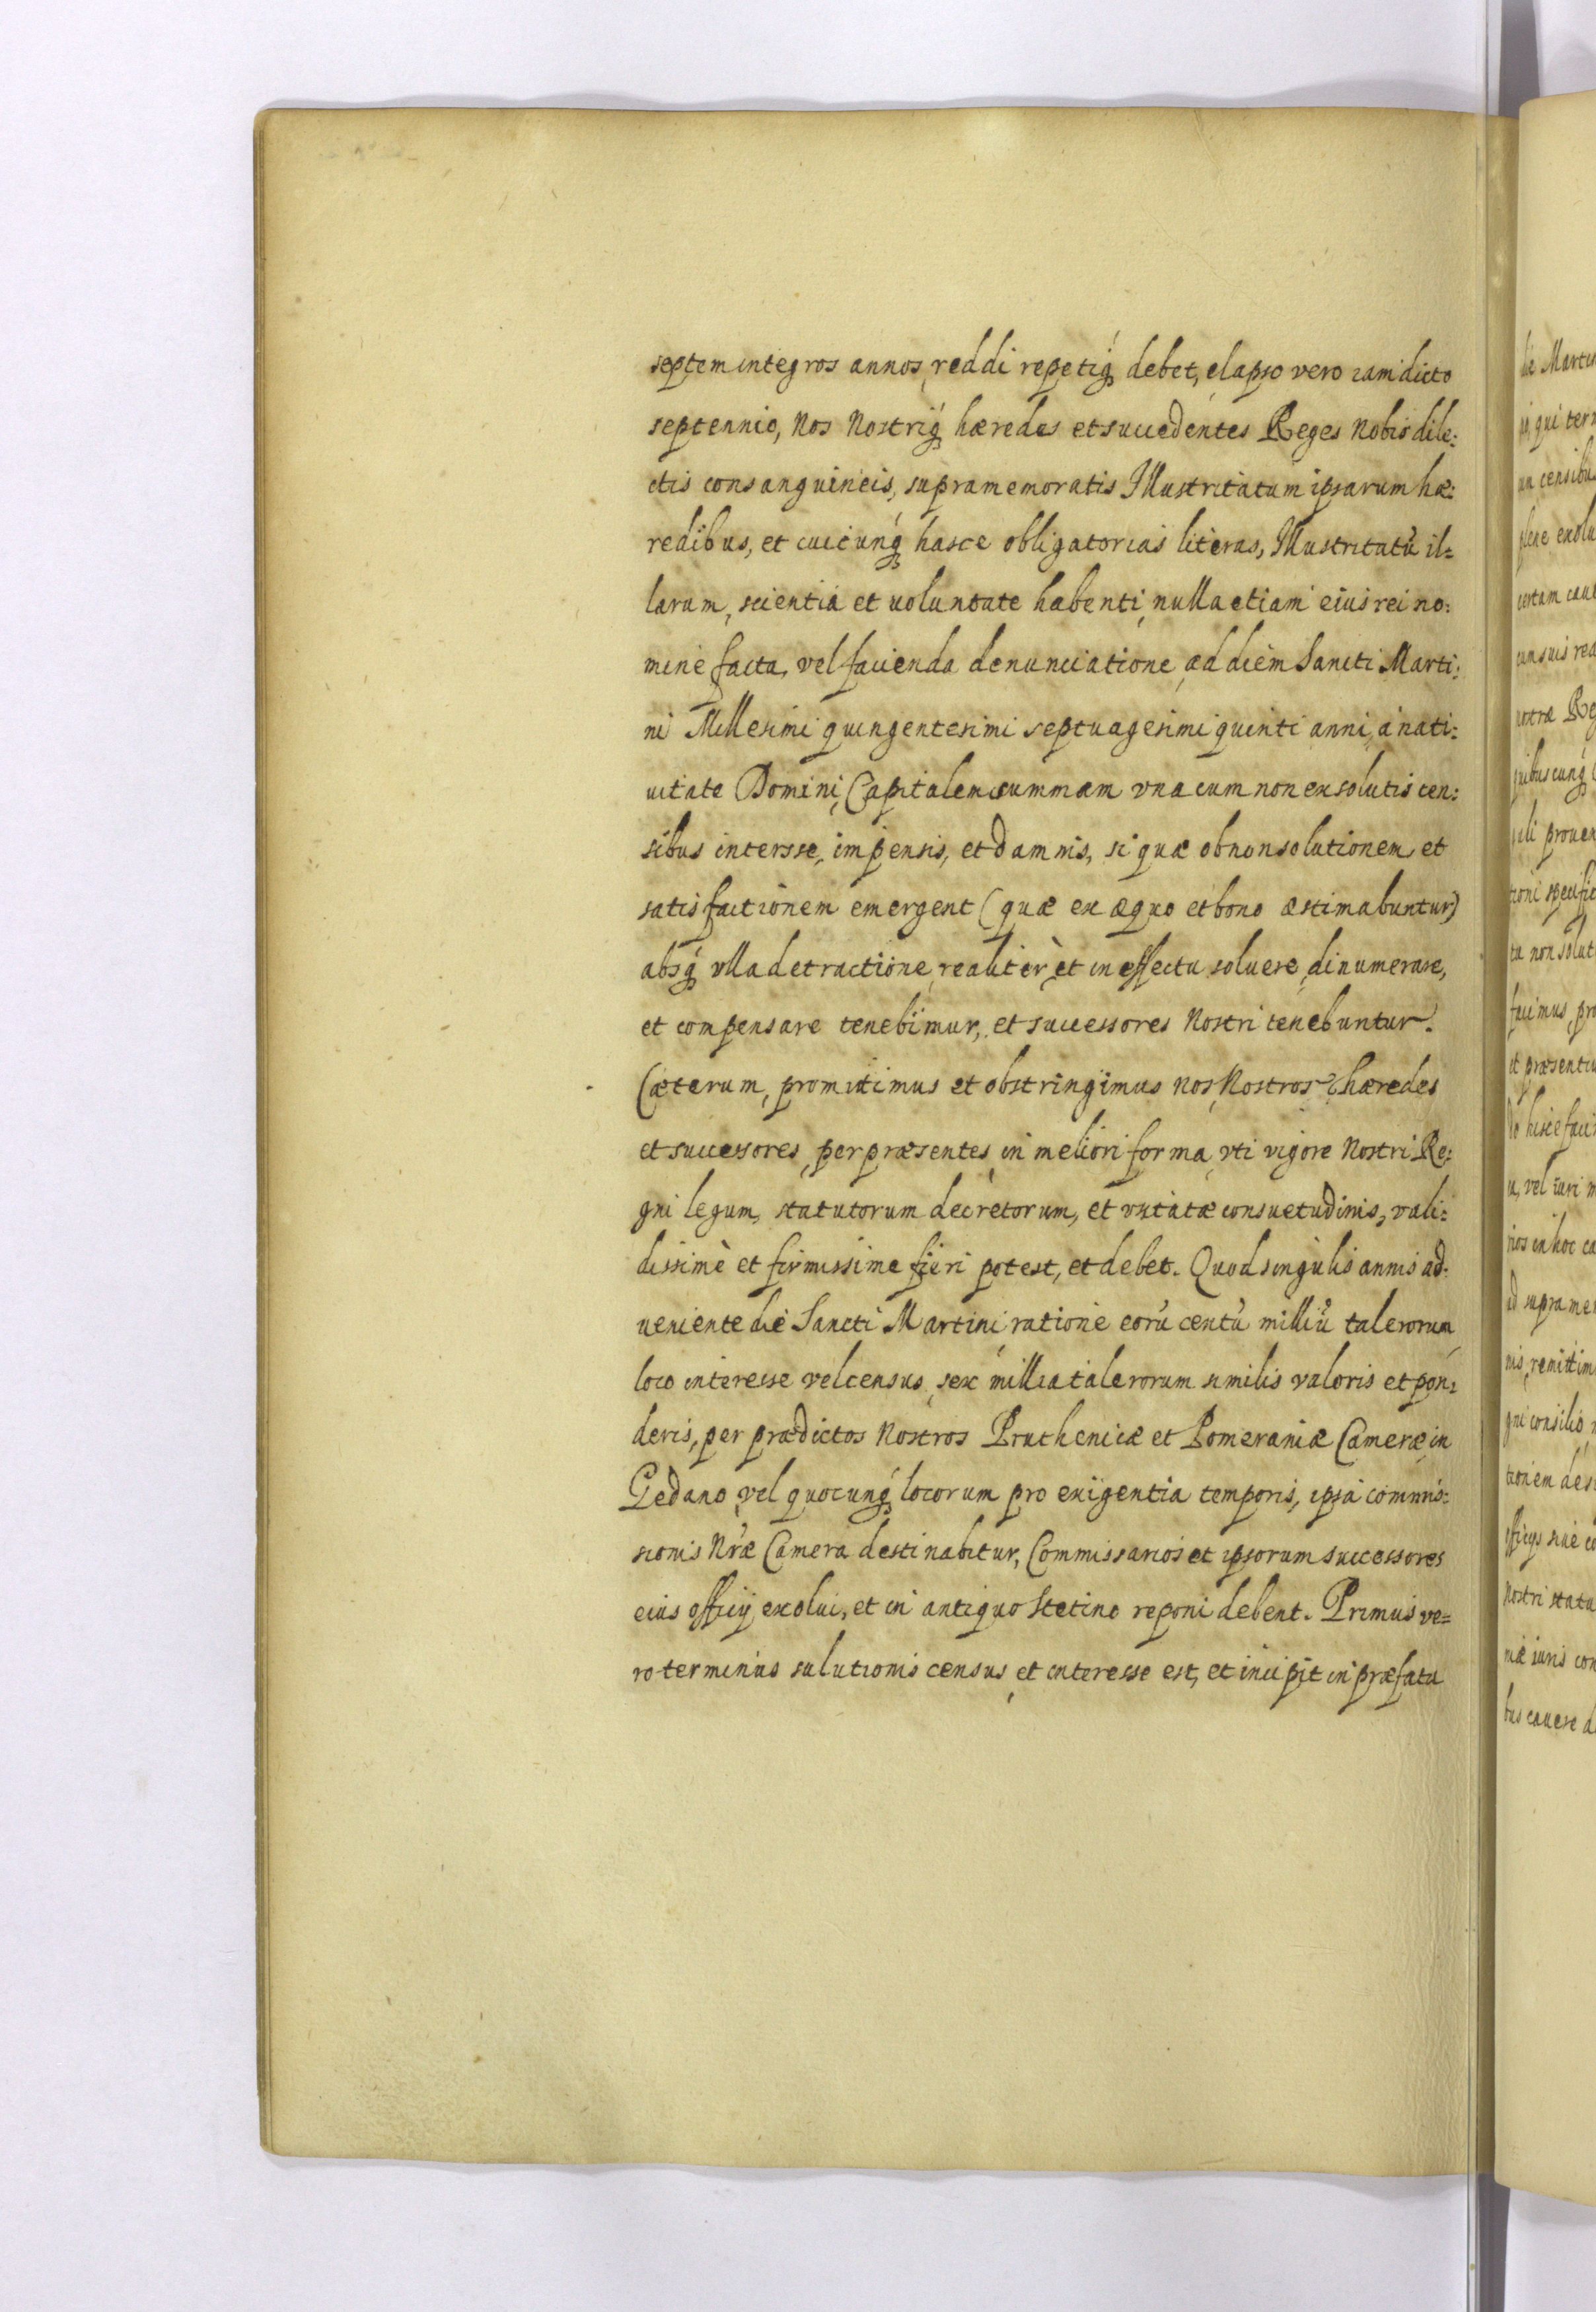 septem integros annos, reddi repetiq́ꝫ debet, elapso vero iam dicto
septennio, Nos Nostriq́ꝫ hæredes et succedentes Reges Nobis dile:
ctis consanguineis, supramemoratis Illustritatum ipsarum hæ:
redibus, et cuicunq́ꝫ hasce obligatorias literas, Illustritatũ il=
larum, scientia et uoluntate habenti, nulla etiam eius rei no:
mine facta, vel facienda denunciatione, ad diem Sancti Marti:
ni Millesimi quingentesimi septuagesimi quinti anni, à nati:
uitate Domini, Capitalem summam vna cum non exsolutis cen:
sibus intersse, impensis, et damnis, si quæ ob non solutionem et
satisfactionem emergent (quæ ex æquo et bono æstimabuntur)
absq́ꝫ vlla detractione, realiter, et in effectu soluere, dinumerare,
et compensare tenebimur, et successores Nostri tenebuntur.
Cæterum, promittimus et obstringimus nos, Nostros, hæredes
et successores, per præsentes, in meliori forma, vti vigore Nostri Re:
gni legum, statutorum decretorum, et vsitatæ consuetudinis, vali:
dissimè et firmissime fieri potest, et debet. Quod singulis annis ad:
ueniente die Sancti Martini, ratione eorũ centũ milliũ talerorum,
loco interesse vel census, sex millia talerorum similis valoris et pon:
deris, per prædictos Nostros Pruthenicæ et Pomeraniæ Cameræ, in
Gedano, vel quocunq́ꝫ locorum pro exigentia temporis, ipsa commis:
sionis Nr̃æ Camera destinabitur, Commissarios et ipsorum successores
eius officij exolui, et in antiquo Stetino reponi debent. Primus ve=
ro terminus solutionis census, et interesse est, et incipit in præfata